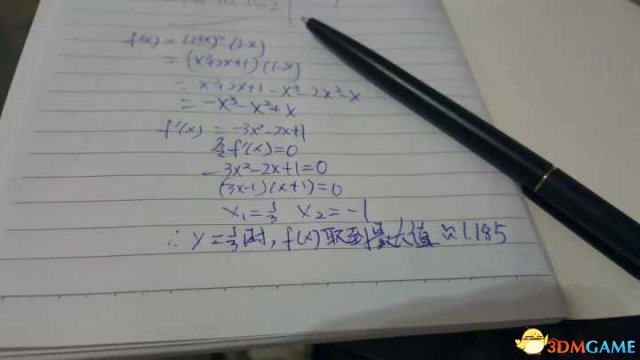 f(x) = (1+x)² (1-x)
= (x²+2x+1) (1-x)
= x²+2x+1-x³-2x²-x
= -x³-x²+x
f'(x) = -3x²-2x+1
令f'(x)=0
-3x²-2x+1=0
(3x-1)(x+1)=0
x₁=1/3 x₂=-1
∴ x=1/3时,f(x)取到最大值≈1.185
3DMGAME